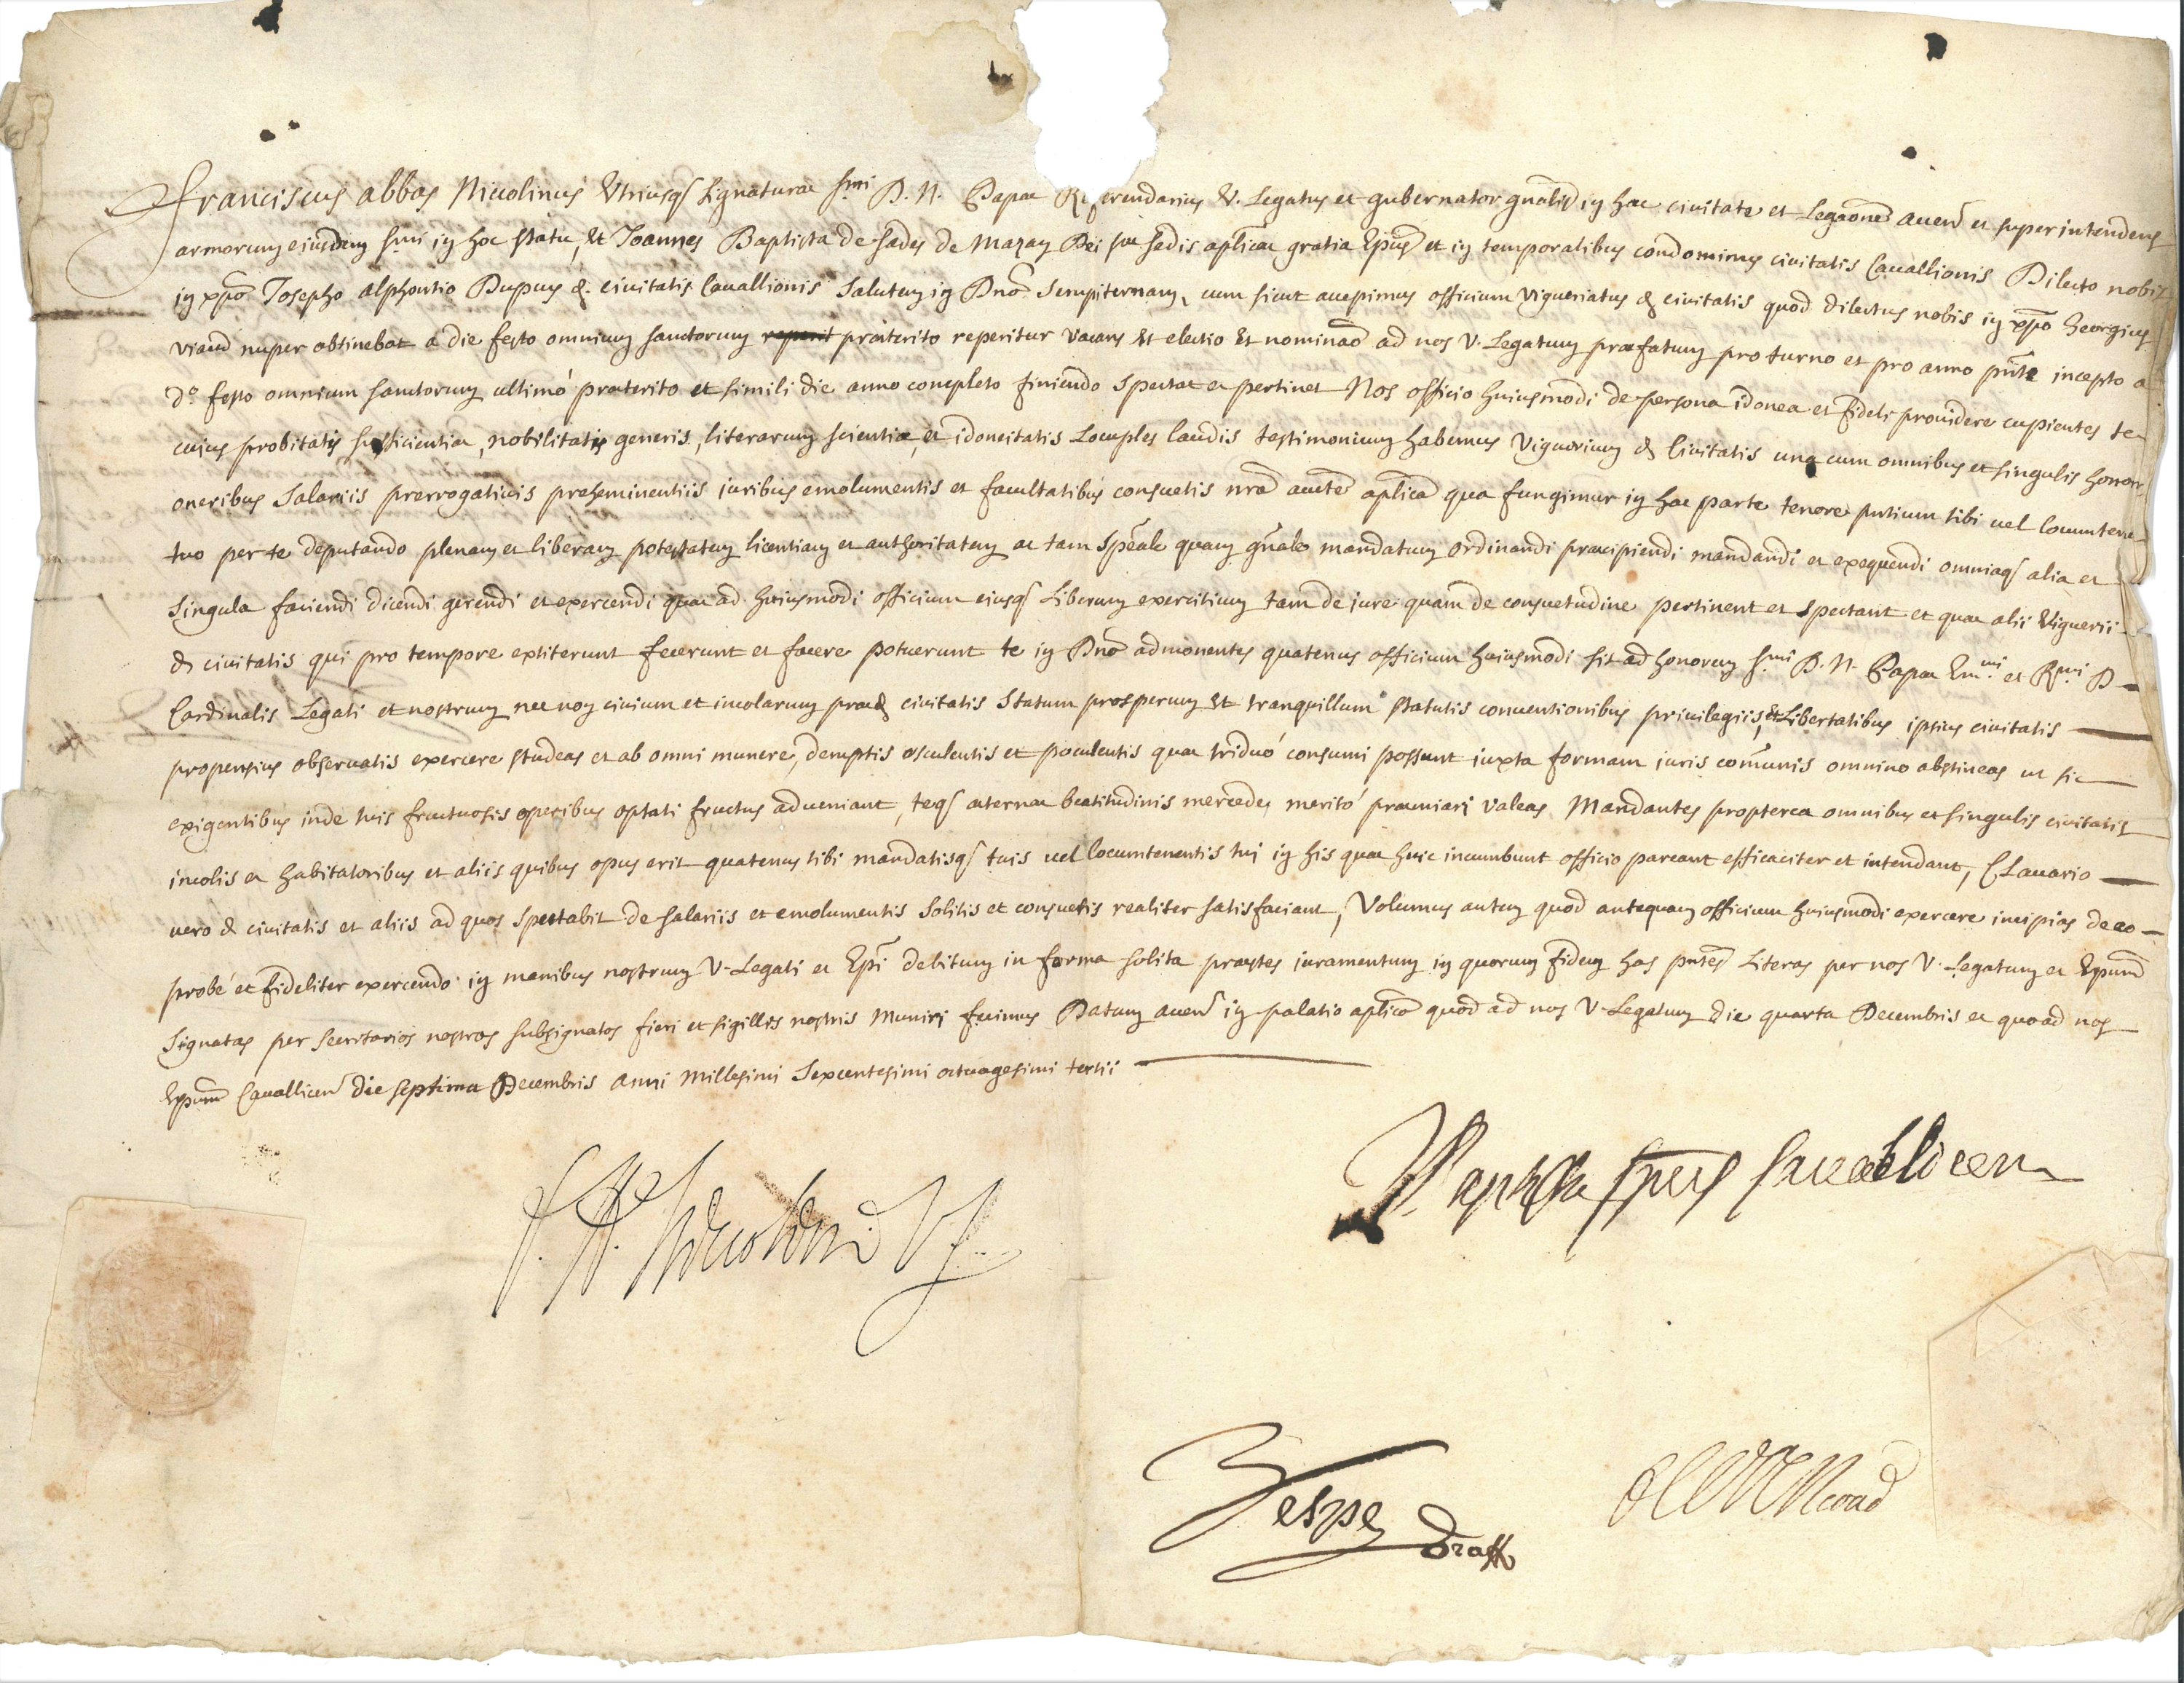 Franciscus abbas Niccolinus Utriusq signaturae S.mi D. N. Papae Referendarius V. Legatus et gubernator gnalis in hac civitate et Legaone aven et superintendens
armorum eiusdem S.mi in hoc statu, et Joannes Baptista de Sades de Mazan Dei et S.tae sedis aplicae gratia Epus et in temporalibus condominus civitatis Cavallionis Dilecto nobis
in xpo Josepho alphontio Dupuy d. civitatis Cavallionis Salutem in Dno Sempiternam, cum sicut accepimus officium vigueriatus d civitatis quod dilectus nobis in xpo Georgius
viaud nuper obtinebat a die festo omnium sanctorum praeterito reperitur vacans et electio et nominao ad nos V. Legatum praefatum pro turno et pro anno pnte incepto a
d.o festo omnium sanctorum ultimó praeterito et simili die anno completo finiendo spectat et pertinet Nos officio huiusmodi de persona idonea et fideli providere cupientes te
cuius probitatis sufficientiae, nobilitatis generis, literarum scientiae, et idoneitatis Locuples laudis testimonium habemus viguerium d Civitatis una cum omnibus et singulis honor
oneribus Salariis prerrogativis preheminentiis juribus emolumentis et facultatibus consuetis nra aucte aplica qua fungimur in hac parte tenore pntium tibi vel locumtene
tuo per te deputando plenam et liberam potestatem licentiam et authoritatem ac tam speale quam gnale mandatum ordinandi praecipiendi mandandi et exequendi omniaq alia et
singula faciendi dicendi gerendi et exercendi quae ad huiusmodi officium eiusq Liberum exercitium tam de jure quam de consuetudine pertinent et spectant et quae alii viguerii
d civitatis qui pro tempore extiterunt fecerunt et facere potuerunt te in Dno admonentes quatenus officium huiusmodi sit ad honorem S.mi D. N. Papae Em.mi et R.mi D
Cardinalis Legati et nostrum nec non civium et incolarum praed civitatis Statum prosperum et tranquillum statutis conventionibus privilegiis, et Libertatibus ipsius civitatis
propensius observatis exercere studeas et ab omni munere, demptis osculentis et poculentis quae triduó consumi possunt iuxta formam iuris comunis omnino abstineas ut sic
exigentibus inde tuis fructuosis operibus optati fructus adveniant, teq aeternae beatitudinis mercedes meritó praemiari valeas Mandantes propterea omnibus et singulis civitatis
incolis et habitatoribus et aliis quibus opus erit quatenus tibi mandatisq tuis vel locumtenentis tui in his quae huic incumbunt officio pareant efficaciter et intendant, Clavario
vero d civitatis et aliis ad quos spectabit de salariis et emolumentis Solitis et consuetis realiter satisfaciant, Volumus autem quod antequam officium huiusmodi exercere incipias de eo
probé et fideliter exercendo in manibus nostrum V. Legati et Epi debitum in forma solita praestes iuramentum in quorum fidem has pntes Literas per nos V. Legatum et Epum
signatas per secritarios nostros subsignatos fieri et sigillis nostris muniri fecimus Datum aven in palatio aplico quod ad nos V. Legatum die quarta Decembris et quoad nos
Epum Cavallicen die septima Decembris anni millesimi Sexcentesimi octuagesimi tertii
Baptista Epus Cavallicen
F. A. Niccolini V L